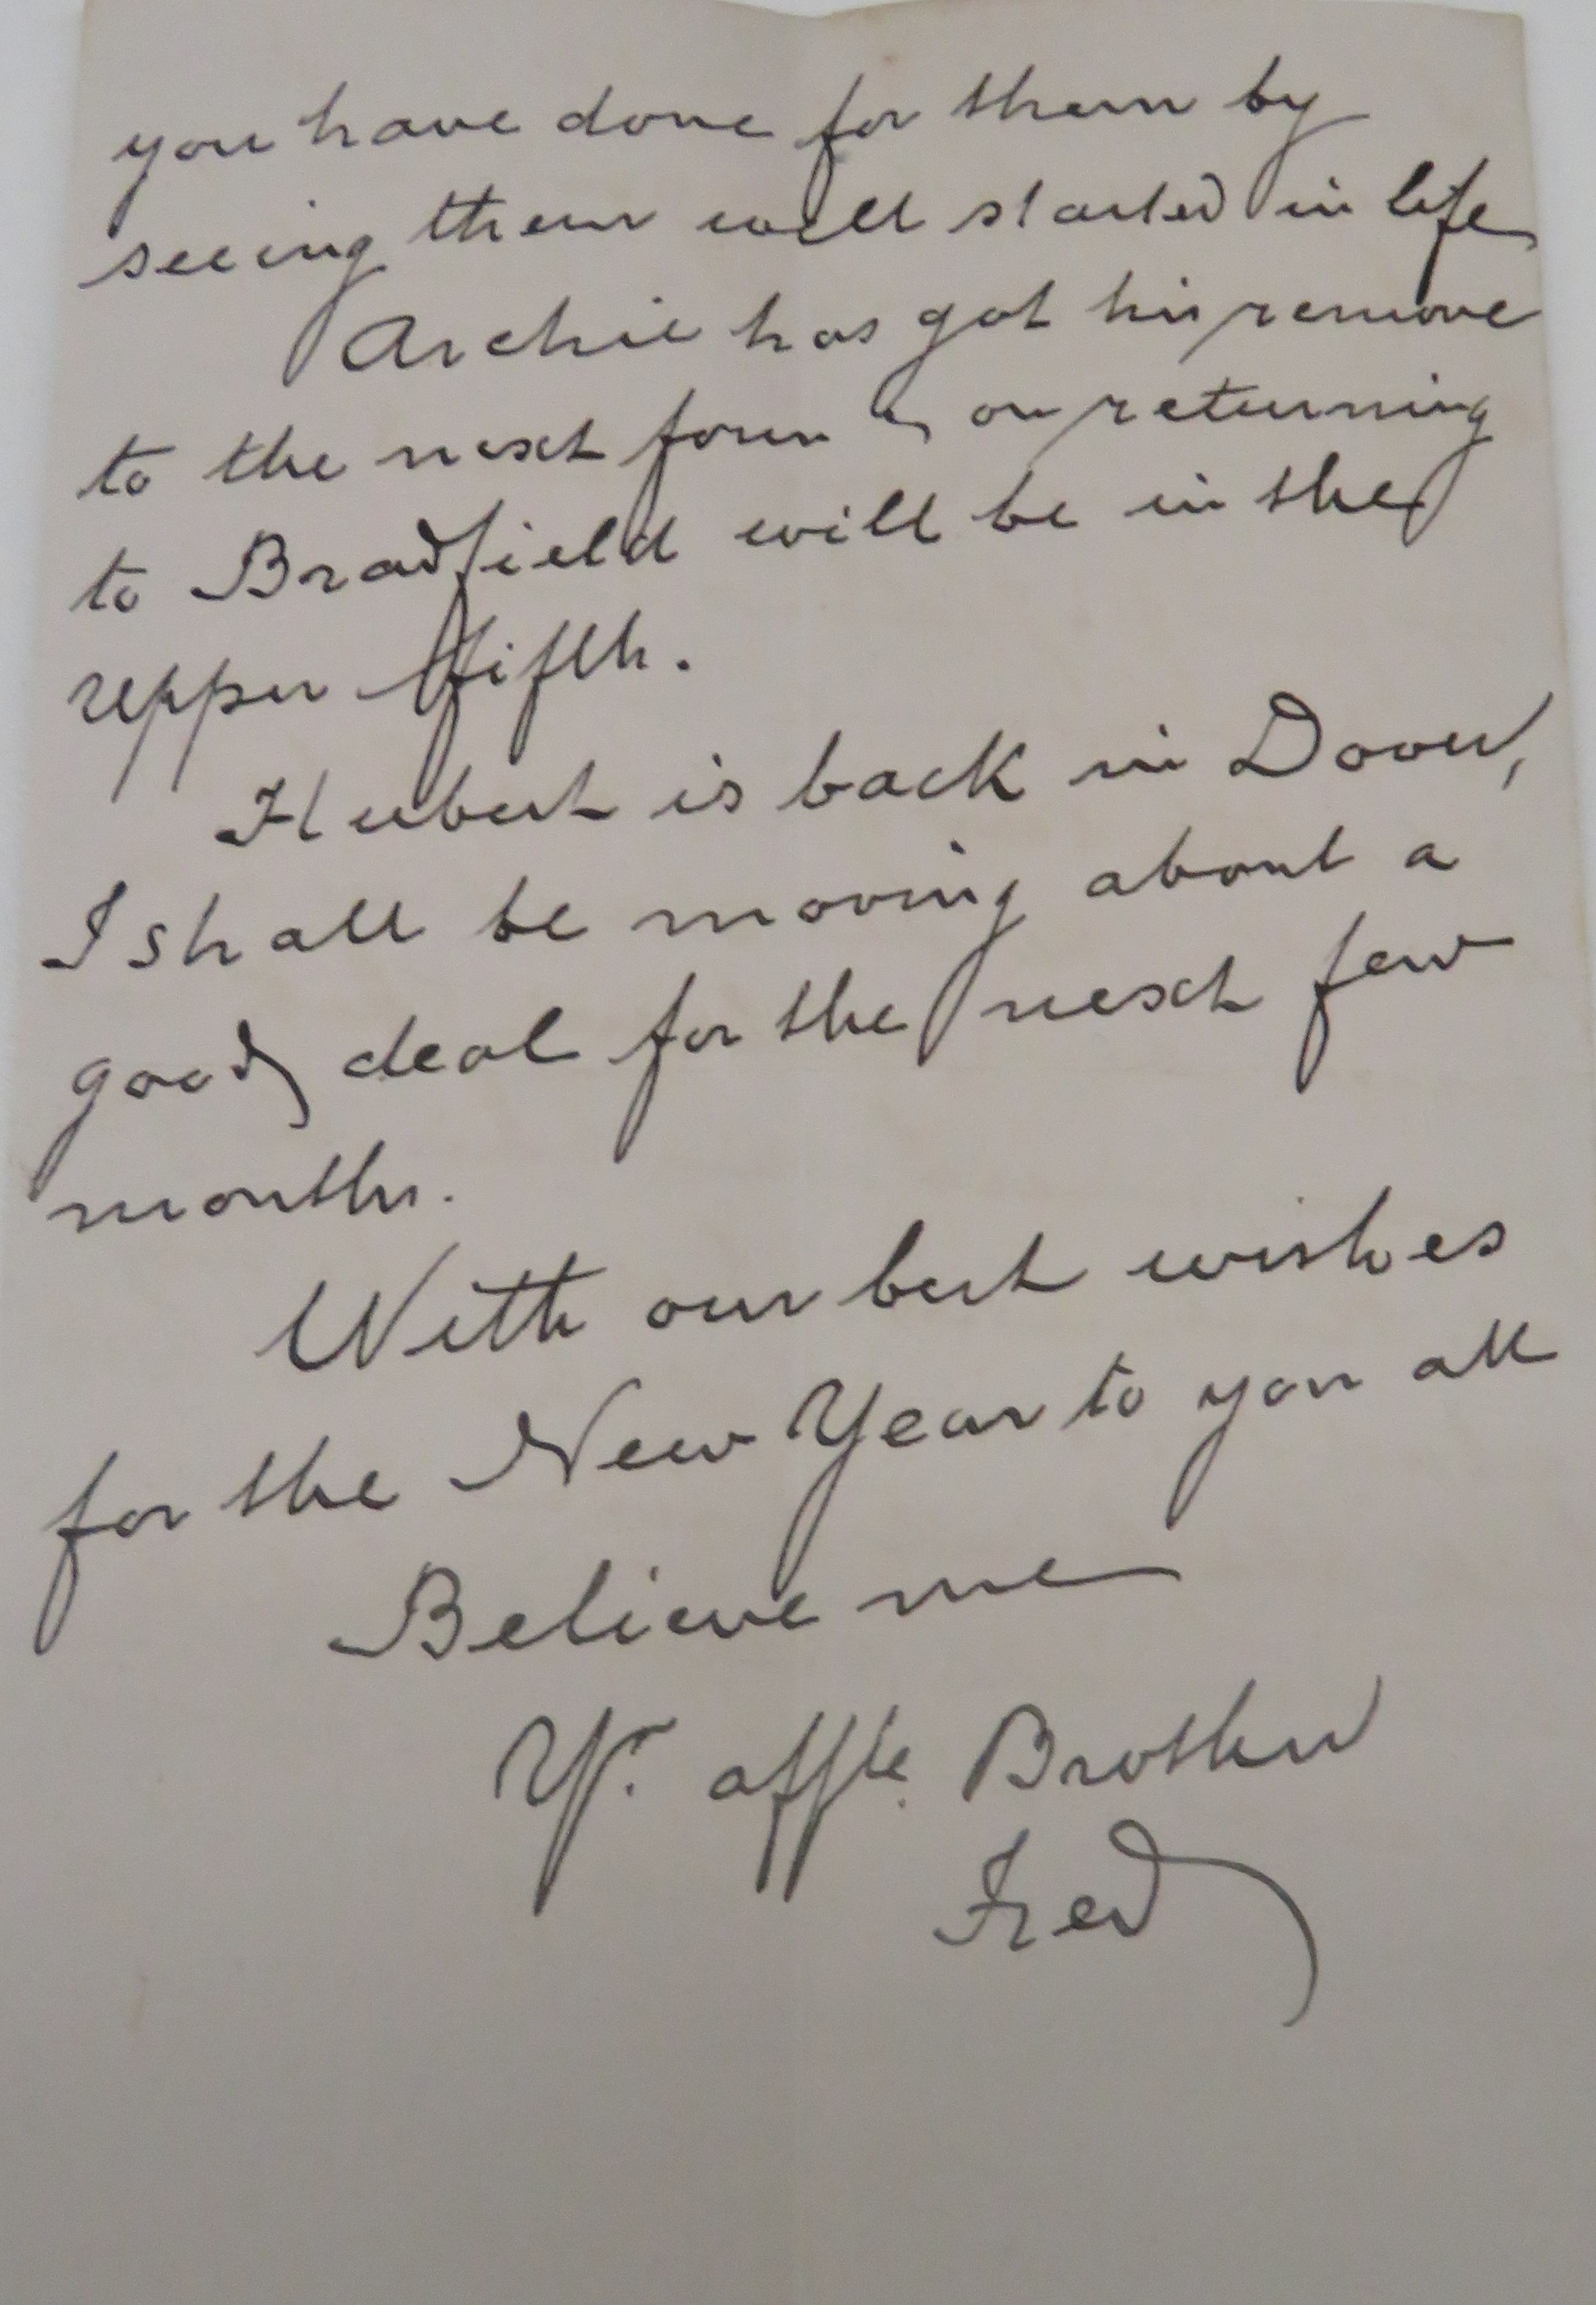 you have done for them by
seeing them well started in life
Archie has got his remove
to the next form & on returning
to Bradfield will be in the
upper fifth.
Hubert is back in Dover,
I shall be moving about a
good deal for the next few
months.
With our best wishes
for the New Year to you all
Believe me
Yr. affte. Brother
Fred